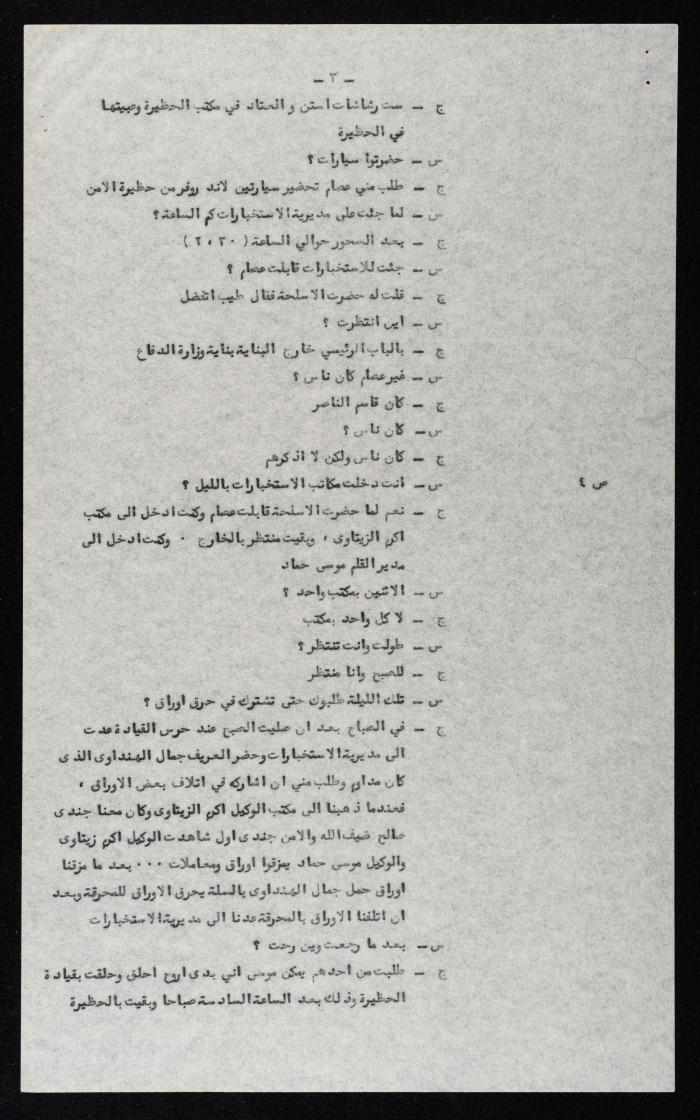 - ٣ -
ج - ست رشاشات استن و العتاد في مكتب الحظيرة وعبيتها
في الحظيرة
س - حضرتوا سيارات ؟
ج - طلب مني عصام تحضير سيارتين لاند روفر من حظيرة الامن
س - لما جئت على مديرية الاستخبارات كم الساعة ؟
ج - بعد السحور حوالي الساعة ( ٢،٣٠ )
س - جئت للاستخبارات قابلت عصام ؟
ج - قلت له حضرت الاسلحة فقال طيب اتفضل
س - اين انتظرت ؟
ج - بالباب الرئيسي خارج البناية بناية وزارة الدفاع
س - غير عصام كان ناس ؟
ج - كان قاسم الناصر
س - كان ناس ؟
ج - كان ناس ولكن لا اذكرهم
ص ٤ س - انت دخلت مكاتب الاستخبارات بالليل ؟
ج - نعم لما حضرت الاسلحة قابلت عصام وكنت ادخل الى مكتب
اكرم الزيتاوى ، وبقيت منتظر بالخارج . وكنت ادخل الى
مدير القلم موسى حماد
س - الاثنين بمكتب واحد ؟
ج - لا كل واحد بمكتب
س - طولت وانت تنتظر ؟
ج - للصبح وانا منتظر
س - تلك الليلة طلبوك حتى تشترك في حرق اوراق ؟
ج - في الصباح بعد ان صليت الصبح عند حرس القيادة عدت
الى مديرية الاستخبارات وحضر العريف جمال الهنداوى الذى
كان مداوم وطلب مني ان اشاركه في اتلاف بعض الاوراق ،
فعندما ذهبنا الى مكتب الوكيل اكرم الزيتاوى وكان معنا جندى
صالح ضيف الله والامن جندى اول شاهدت الوكيل اكرم زيتاوى
والوكيل موسى حماد يمزقوا اوراق ومعاملات ... بعد ما مزقنا
اوراق حمل جمال الهنداوى بالسلة يحرق الاوراق للمحرقة وبعد
ان اتلفنا الاوراق بالمحرقة عدنا الى مديرية الاستخبارات
س - بعد ما رجعت وين رحت ؟
ج - طلبت من احدهم يمكن موسى اني بدى اروح احلق وحلقت بقيادة
الحظيرة وذلك بعد الساعة السادسة صباحا وبقيت بالحظيرة